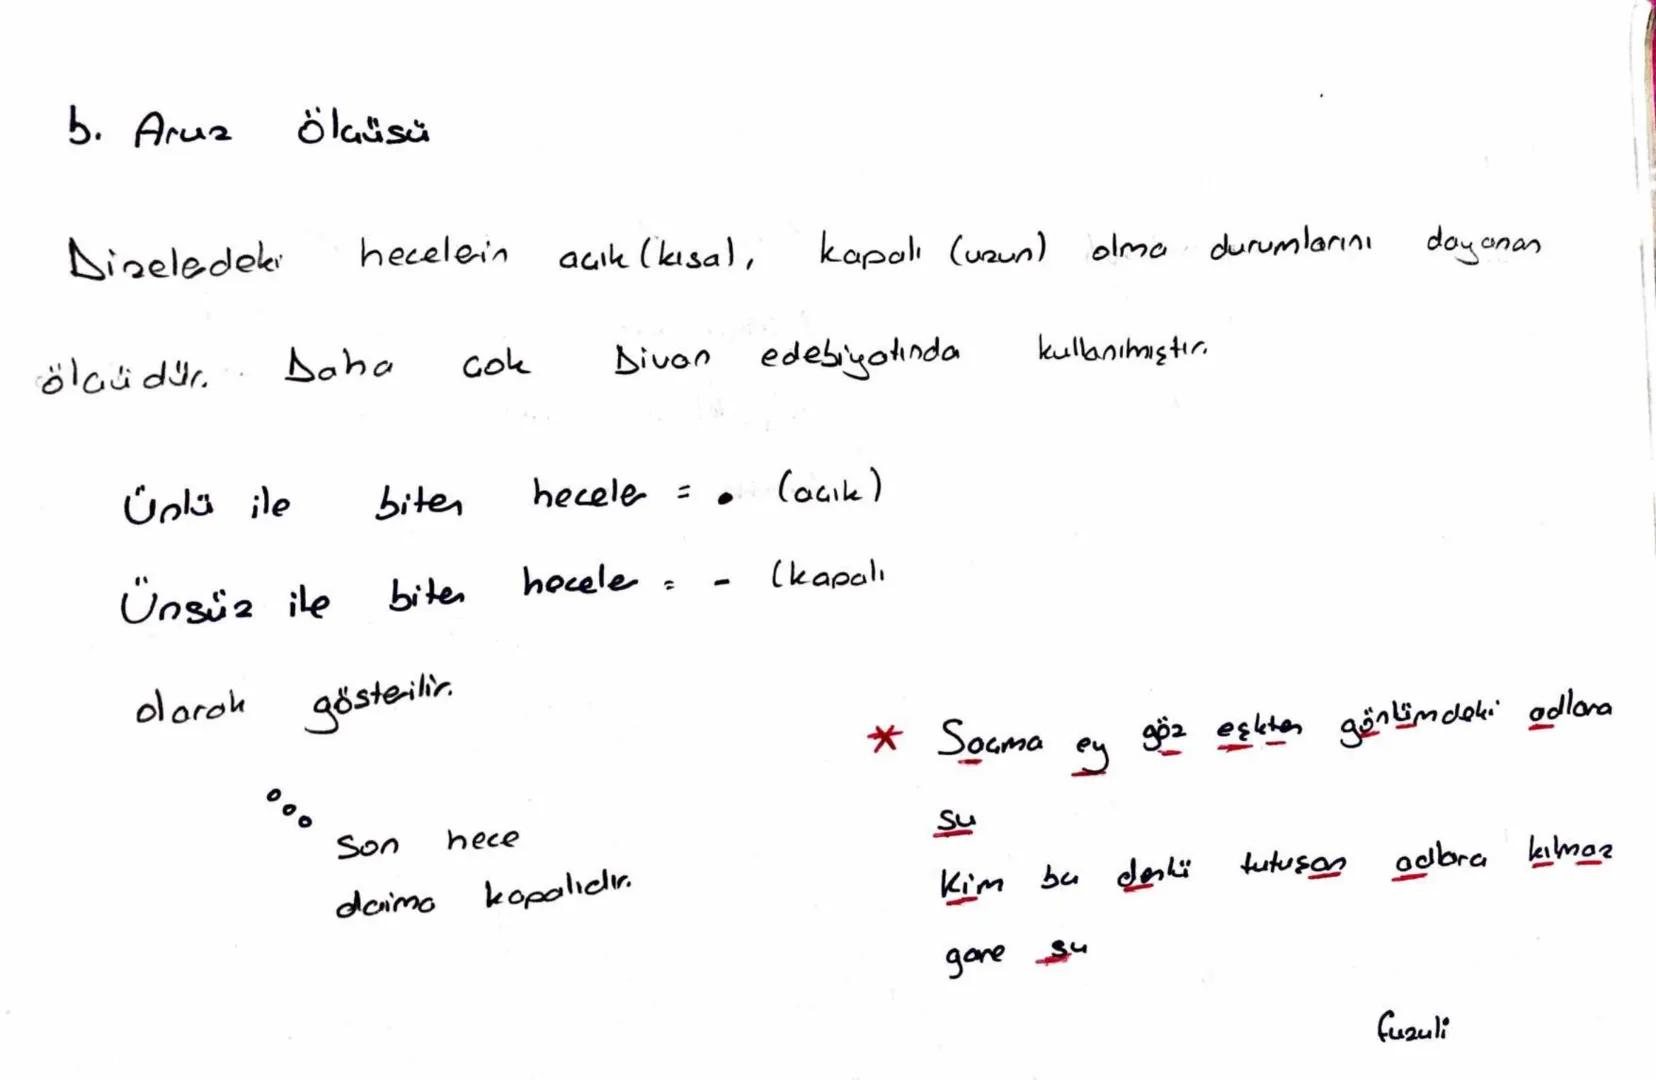 b. Aruz ölçüsü
Dizeledeki hecelerin açık (kısa), kapalı (uzun) olma durumlarını dayanan
ölçüdür. Daha çok Divan edebiyatında kullanılmıştır.
Ünlü ile biten heceler = • (açık)
Ünsüz ile biten heceler = - (kapalı
olarak gösterilir.
* Saçma ey göz eşkten gönlümdeki odlara
su
Son hece
daima kapalıdır.
Kim bu denlü tutuşan odlara kılmaz
çare su
fuzuli